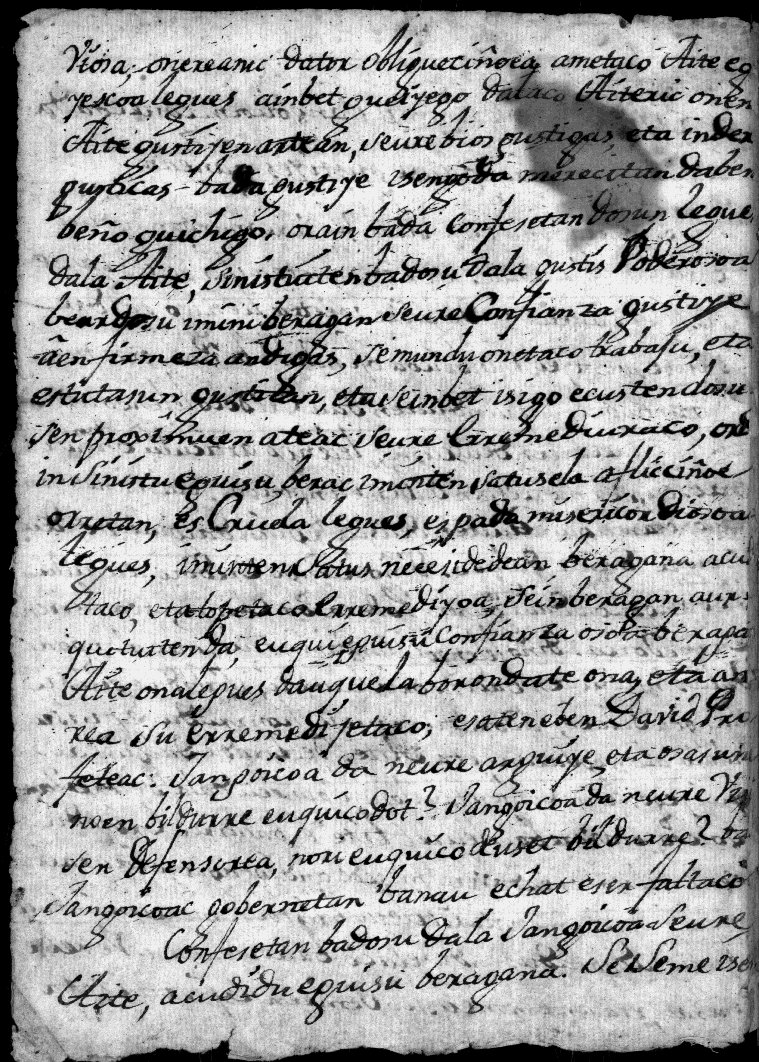 Viosa, onereanic dator obliqueciñoea, ametaco Aite eg
yescoa legues ainbet gueiyego dalaco Aiteric onen
Aite gustiyen artean, seure bios gustigas, eta inder
gusticas - bada gustiye isengoda merecitan daben
beño guichigo, orain bada Confesetan dosun legue,
dala Aite, Sinistuten badosu dala gustis Poderosoa
bear dosu imini beragan seure Confianza gustiye
firmeza andigas, se mundu onetaco trabaju, eta
estutasun gustitan, eta seinbet isigo ecusten dosu
sen proximuen ateac seure Erremediuraco, ord
in Sinistu eguisu, berac iminten satusela afficciñoe
orretan, es Cruela legues, espada misericordiosoa
legues, iminten satus necesidedean beragana acu
etaco, eta topetaco Erremediyoa, Seinberagan aur
quituten da, euqui eguisu Confianza osoa beraga
Aite ona legues dauquela borondate ona, eta an
rea su Erremedijetaco, esaten eben David Pro
feteac: Jangoicoa da neure arguiye, eta osasuna
noen bildurre euquico dot? Jangoicoa da neure Vizi
sen Defensorea, nori euquico deuset bildurre? ba
Jangoicoac gobernetan banau echat eser faltaco
Confesetan badosu dala Jangoicoa Seure
Aite, acudidu eguisu beragana. Se Seme isen